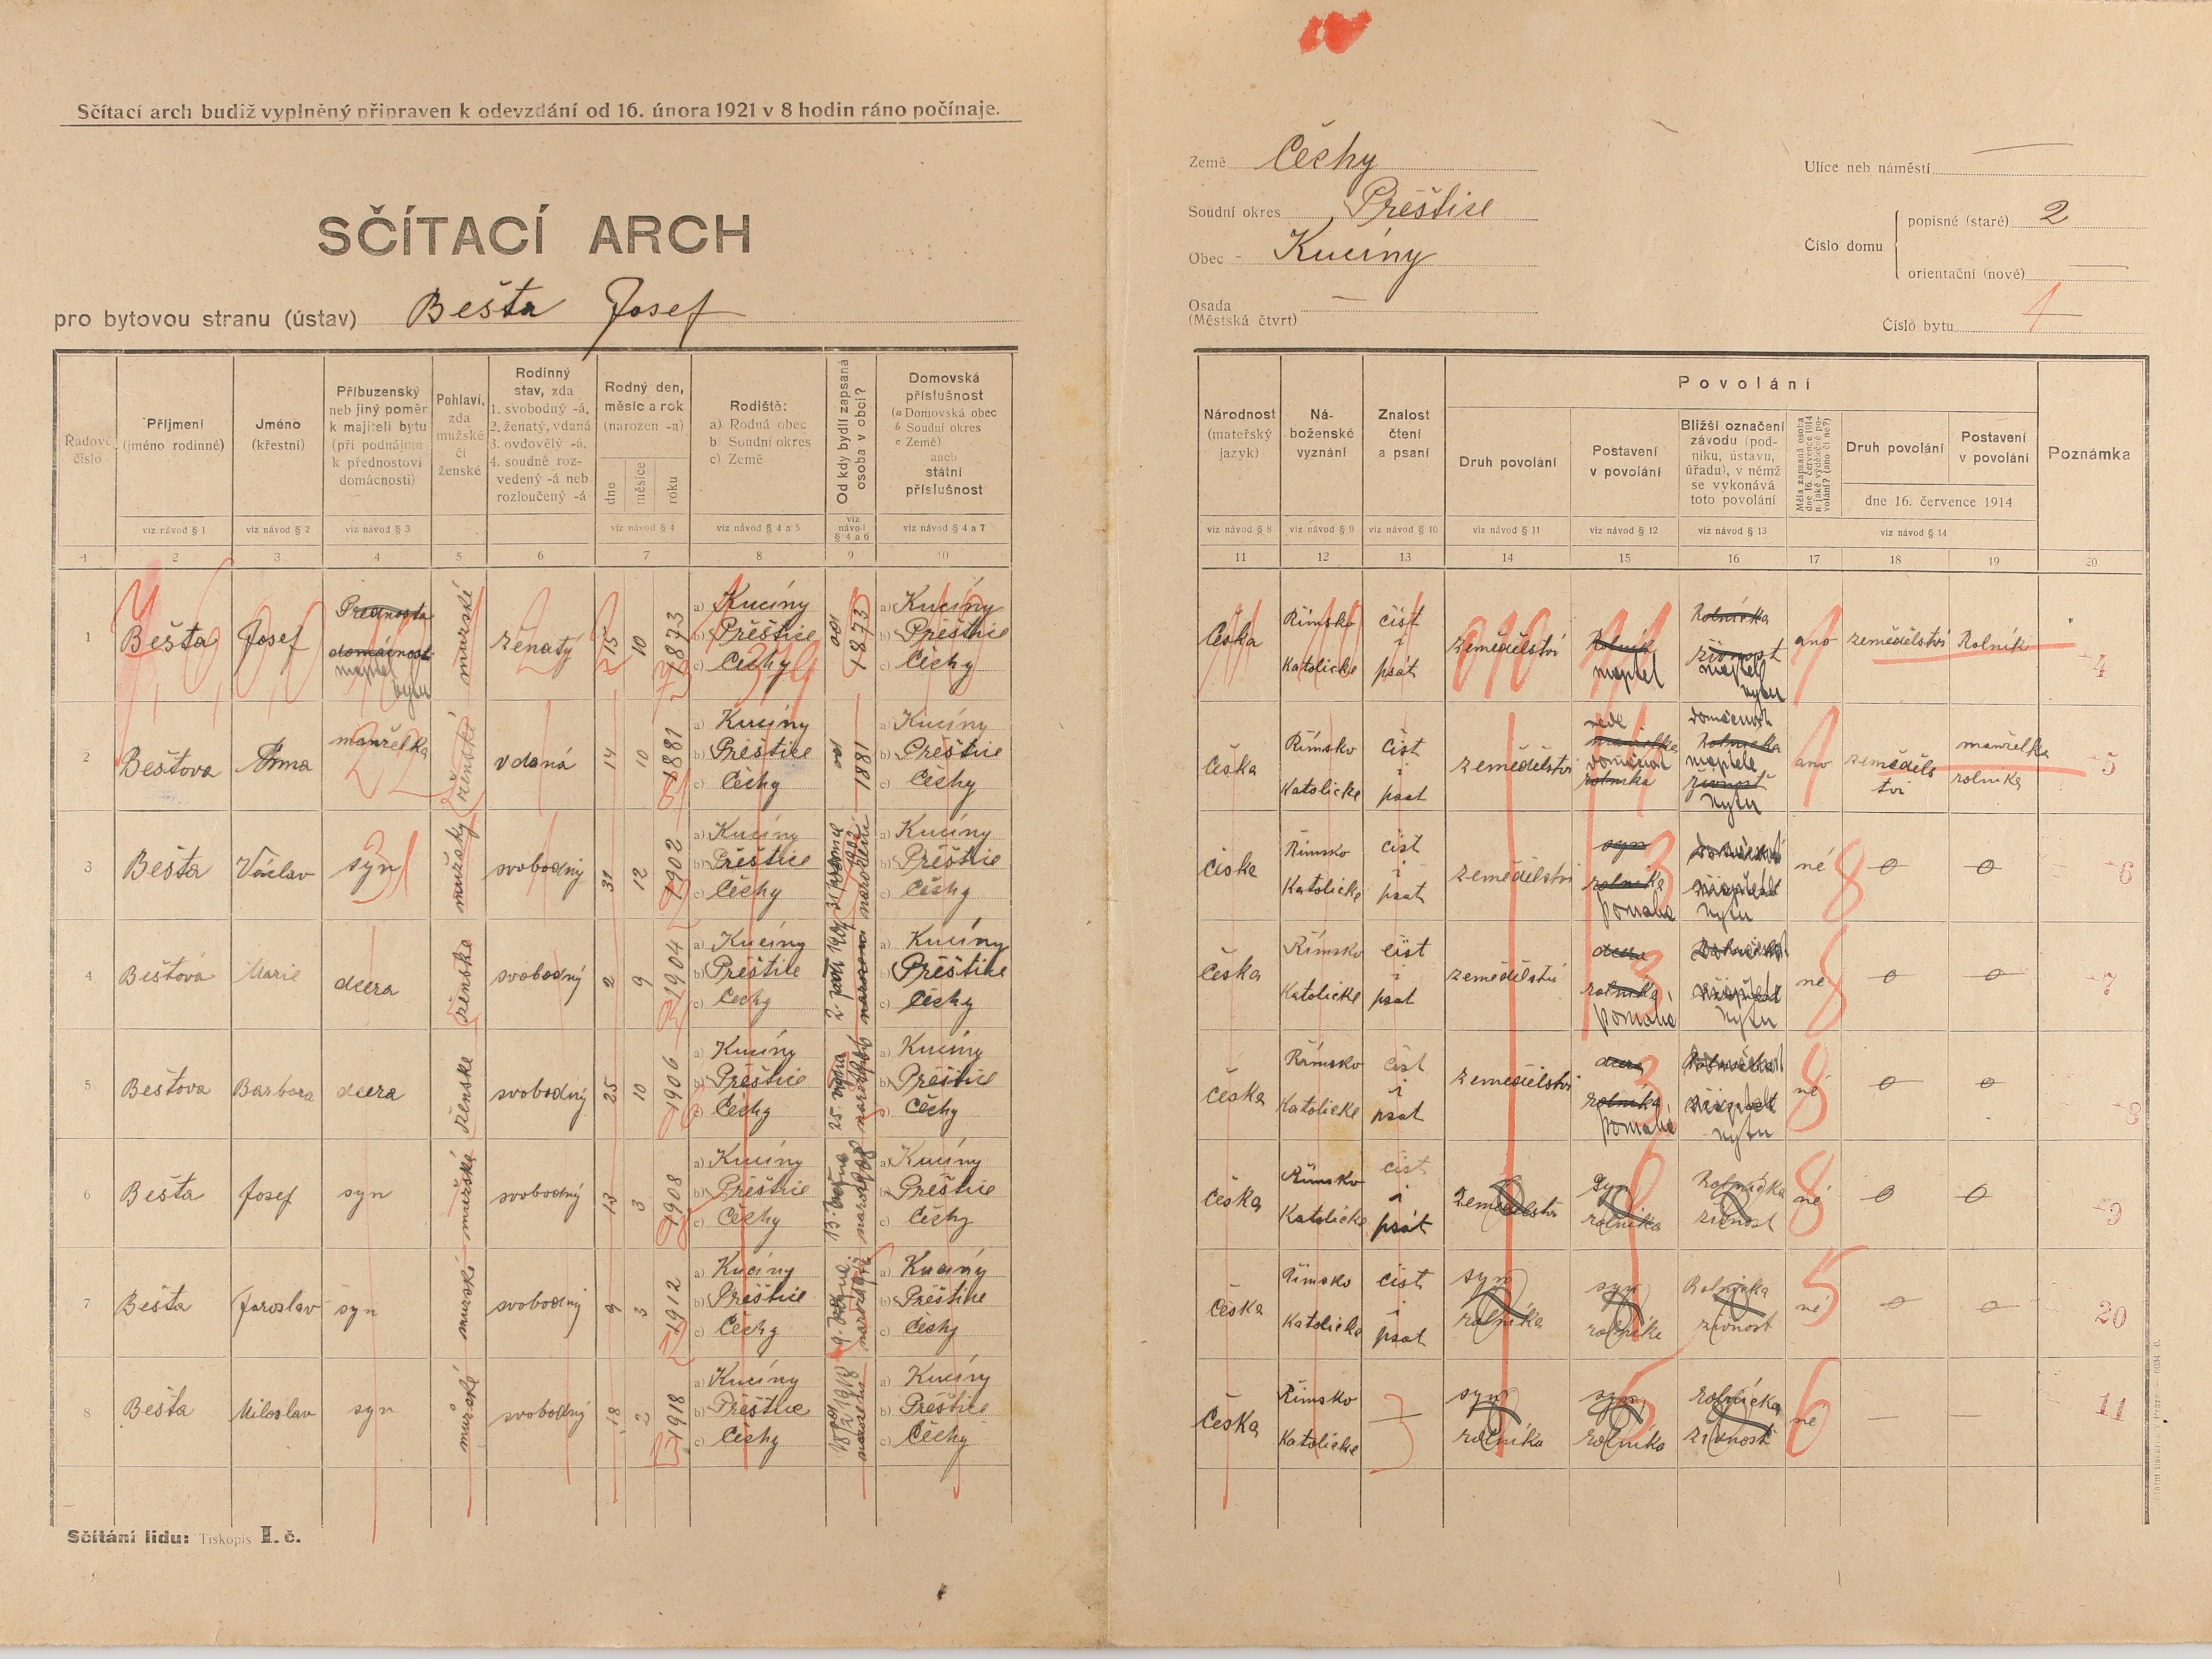 Sčítací arch budiž vyplněný připraven k odevzdání od 16. února 1921 v 8 hodin ráno počínaje.
SČÍTACÍ ARCH
pro bytovou stranu (ústav) Bešta Josef
Řadové číslo
Příjmení (jméno rodinné)
Jméno (křestní)
Příbuzenský neb jiný poměr k majiteli bytu (při podnájmu k přednostovi domácnosti)
Pohlaví, zda mužské či ženské
Rodinný stav, zda 1. svobodný -á, 2. ženatý, vdaná 3. ovdovělý -á, 4. soudně rozvedený -á neb rozloučený -á
Rodný den, měsíc a rok (narozen -a)
dne měsíce roku
Rodiště: a) Rodná obec b) Soudní okres c) Země
Od kdy bydlí zapsaná osoba v obci?
Domovská příslušnost (a Domovská obec b Soudní okres c Země) aneb státní příslušnost
viz návod § 1 viz návod § 2 viz návod § 3 viz návod § 4 viz návod § 4 a 5 viz návod § 4 a 6 viz návod § 4 a 7
1 2 3 4 5 6 7 8 9 10
1 Bešta Josef Přednosta domácnosti majitel bytu mužské ženatý 15 10 1873 a) Kucíny b) Přeštice c) Čechy 1873 a) Kucíny b) Přeštice c) Čechy
2 Beštova Anna manželka ženské vdaná 14 10 1881 a) Kucíny b) Přeštice c) Čechy 1881 a) Kucíny b) Přeštice c) Čechy
3 Bešta Václav syn mužský svobodný 31 12 1902 a) Kucíny b) Přeštice c) Čechy a) Kucíny b) Přeštice c) Čechy
4 Beštova Marie dcera ženske svobodný 2 9 1904 a) Kucíny b) Přeštice c) Čechy a) Kucíny b) Přeštice c) Čechy
5 Beštova Barbora dcera ženske svobodný 25 10 1906 a) Kucíny b) Přeštice c) Čechy a) Kucíny b) Přeštice c) Čechy
6 Bešta Josef syn mužské svobodný 13 3 1908 a) Kucíny b) Přeštice c) Čechy a) Kucíny b) Přeštice c) Čechy
7 Bešta Jaroslav syn mužské svobodný 9 3 1912 a) Kucíny b) Přeštice c) Čechy a) Kucíny b) Přeštice c) Čechy
8 Bešta Miloslav syn mužské svobodný 18 2 1918 a) Kucíny b) Přeštice c) Čechy 18/2 1918 a) Kucíny b) Přeštice c) Čechy
Sčítání lidu: Tiskopis I. č.
Země Čechy
Soudní okres Přeštice
Obec Kucíny
Osada (Městská čtvrt) —
Ulice neb náměstí —
Číslo domu
popisné (staré) 2
orientační (nové) —
Číslo bytu 1
Národnost (mateřský jazyk)
Náboženské vyznání
Znalost čtení a psaní
Povolání
Druh povolání
Postavení v povolání
Bližší označení závodu (podniku, ústavu, úřadu), v němž se vykonává toto povolání
Měla zapsaná osoba dne 16. července 1914 nějaké výdělečné povolání? (ano či ne?)
Druh povolání
Postavení v povolání
dne 16. července 1914
Poznámka
viz návod § 8 viz návod § 9 viz návod § 10 viz návod § 11 viz návod § 12 viz návod § 13 viz návod § 14
11 12 13 14 15 16 17 18 19 20
Česka Římsko Katolicke číst i psát zemědělství Rolník majitel Rolnická živnost majitel bytu ano zemědělství Rolník 4
Česka Římsko Katolicke číst i psat zemědělství vede manželka domácnost rolníka domácnost Rolnicka majitele živnost bytu ano zemědělství manželka rolnika 5
Česka Římsko Katolicke číst i psat zemědělstvi syn rolnika pomahá bytu né 0 0 6
Česka Římsko Katolicke číst i psat zemědělství dcera rolnika pomahá bytu né 0 0 7
Česka Římsko Katolicke číst i psat zemědělstvi dcera rolníka pomahá bytu né 0 0 8
Česka Římsko Katolicke číst i psát Zemědělstvi Syn rolníka Rolnicka živnost né 0 0 9
Česka Římsko Katolicke číst i psat syn rolníka syn rolníka Rolnicka živnost né 0 0 20
Česka Římsko Katolicke — syn rolníka syn rolníka rolnicka živnost ne — — 11